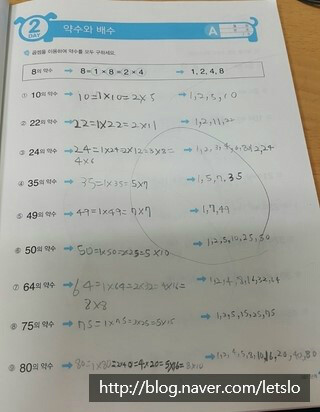 2 DAY 약수와 배수 A
곱셈을 이용하여 약수를 모두 구하세요.
8의 약수 8=1×8=2×4 1, 2, 4, 8
① 10의 약수 10=1×10=2×5 1,2,5,10
② 22의 약수 22=1×22=2×11 1,2,11,22
③ 24의 약수 24=1×24=2×12=3×8=
4×6
④ 35의 약수 35=1×35=5×7 1,5,7,35
⑤ 49의 약수 49=1×49=7×7 1,7,49
⑥ 50의 약수 50=1×50=2×25=5×10 1,2,5,10,25,50
⑦ 64의 약수 64=1×64=2×32=4×16=
8×8
⑧ 75의 약수 75=1×75=3×25=5×15 1,3,5,15,25,75
⑨ 80의 약수 80=1×80=2×40=4×20=5×16=8×10
http://blog.naver.com/letslo